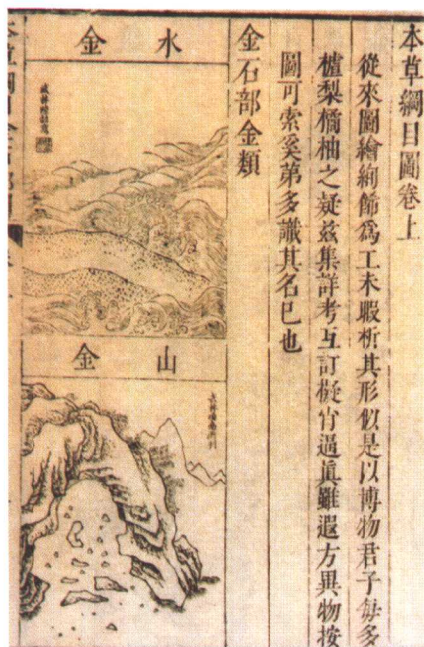 本草綱目圖卷上
從來圖繪絢飾爲工未暇析其形似是以博物君子每多
樝梨橘柚之疑茲集詳考互訂擬肖逼眞雖遐方異物按
圖可索奚第多識其名已也
金石部金類
水金
山金